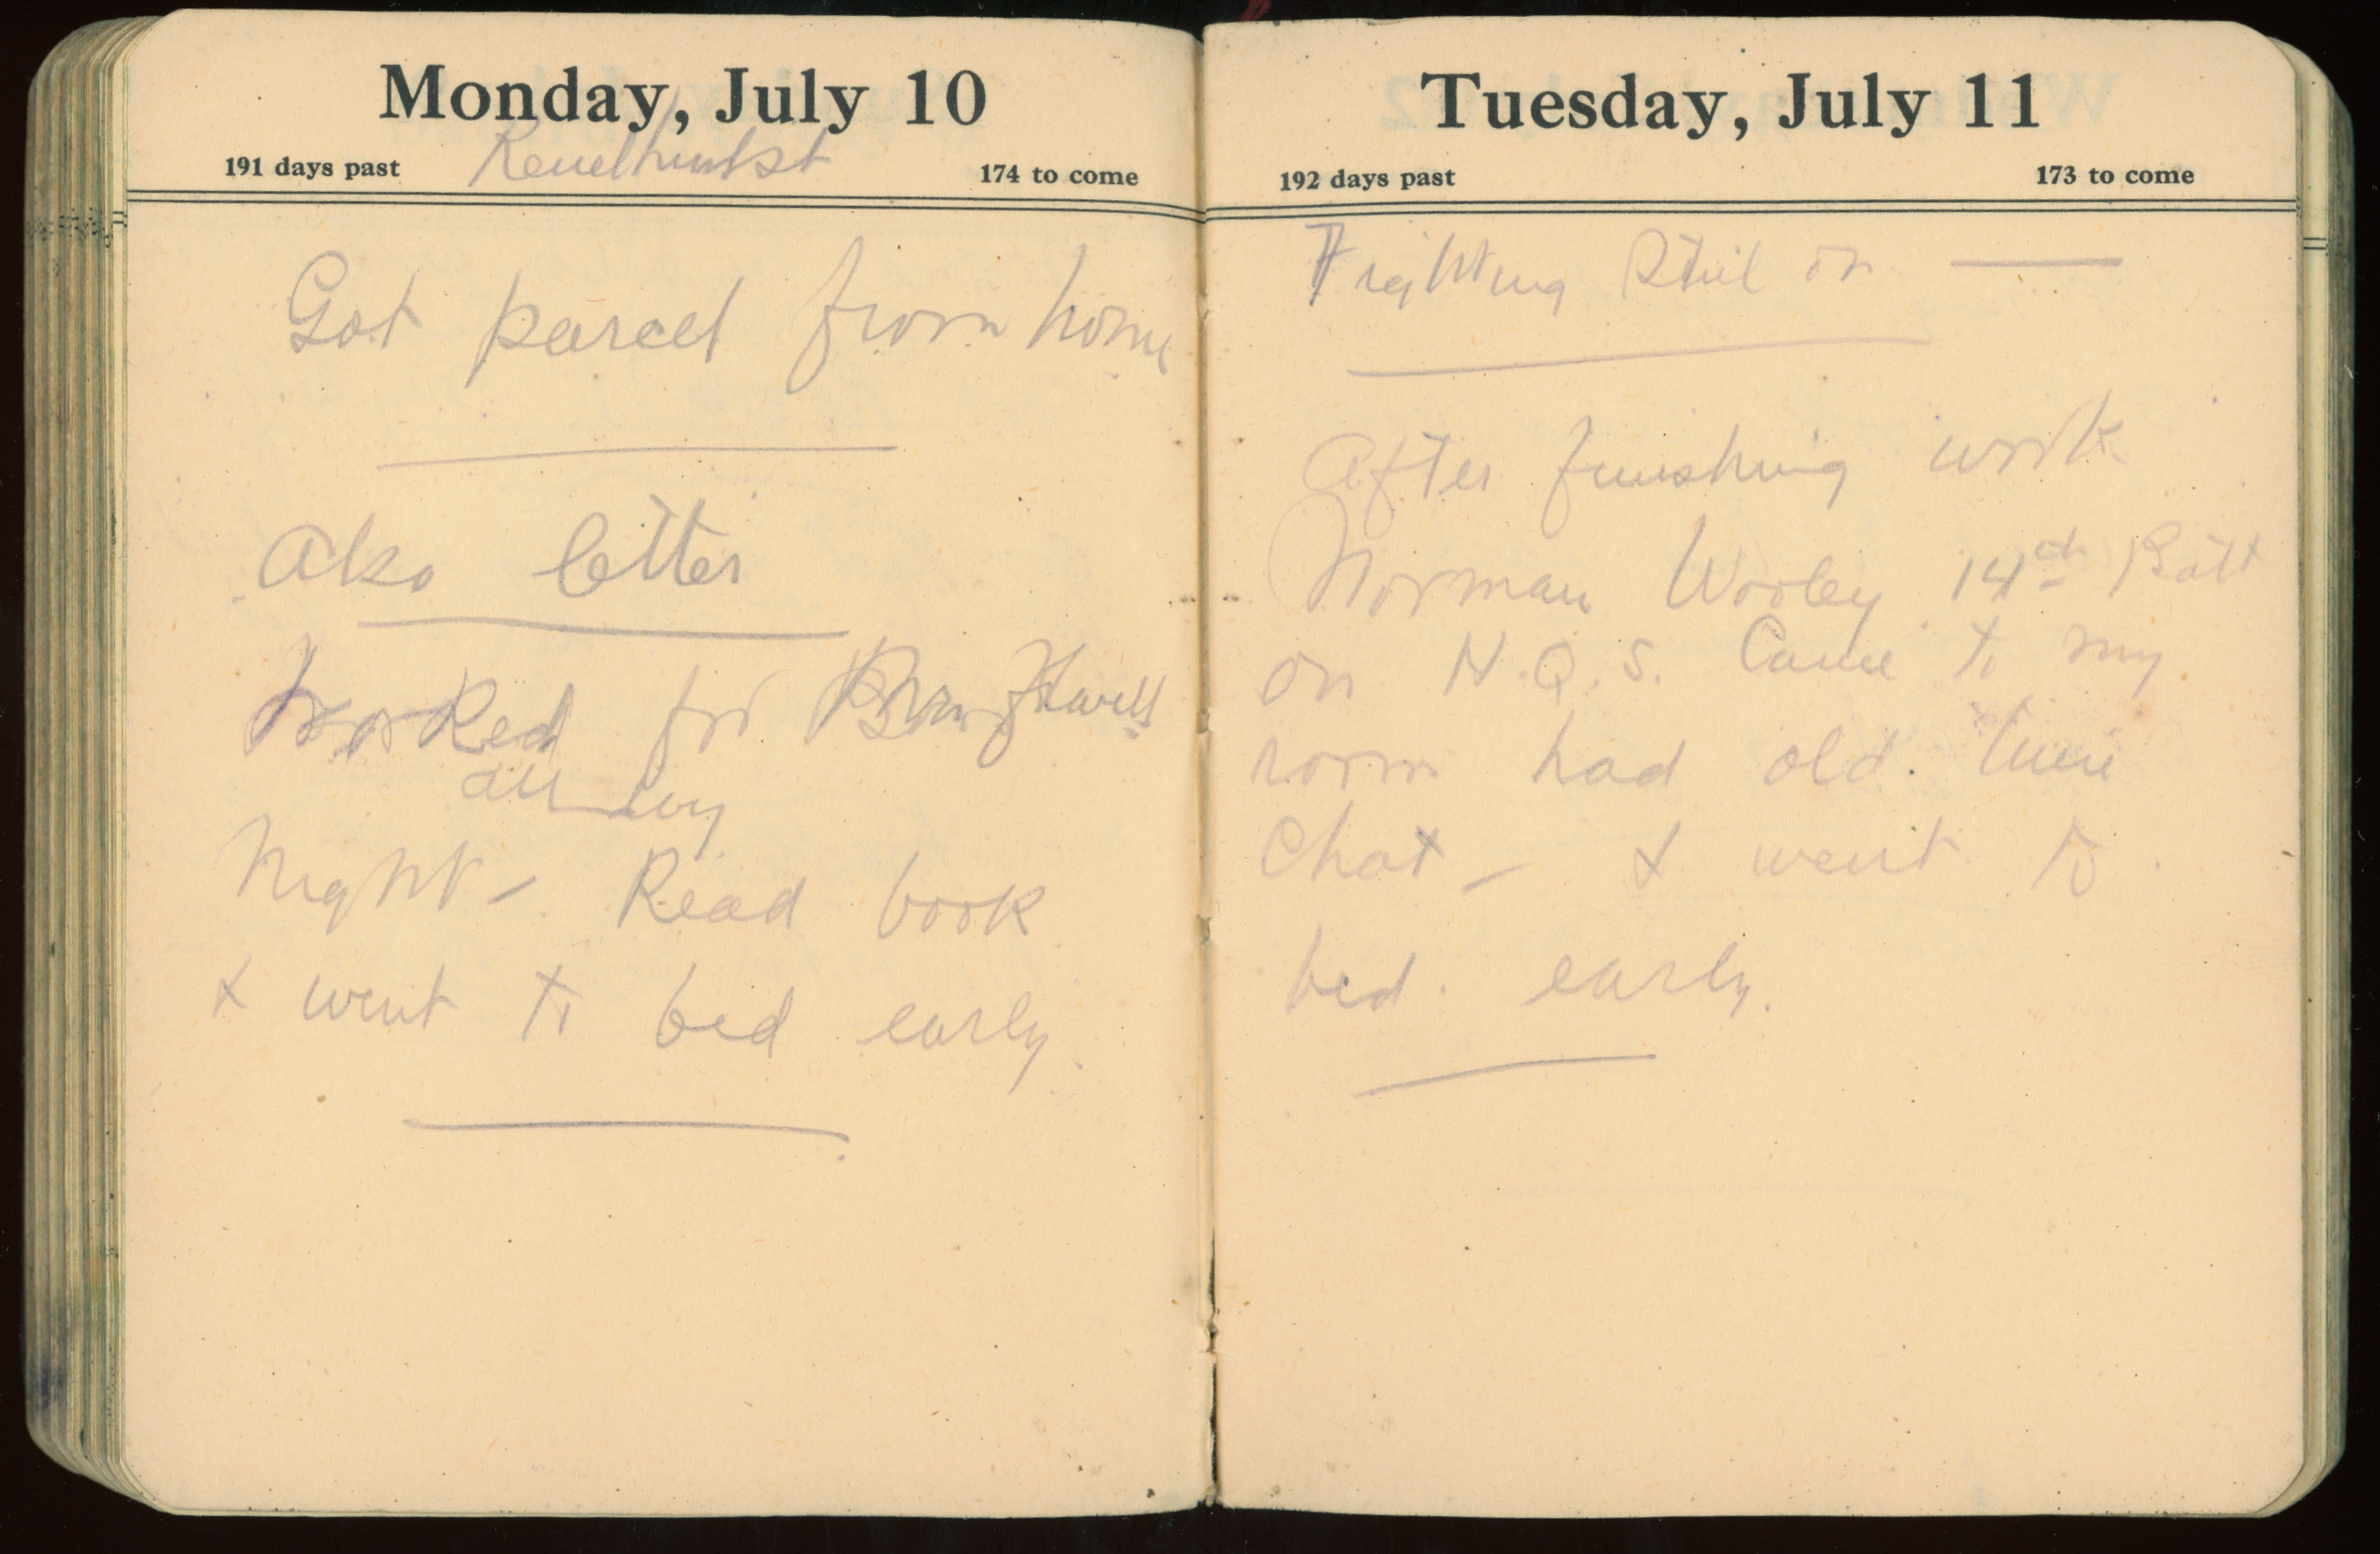 Monday, July 10
191 days past
174 to come
Got parcel from home
Also letter
Worked for
all day
Night - Read book
& went to bed early.
Tuesday, July 11
192 days past
173 to come
Fighting Still on —
After finishing work
Norman Wooley 14th Batt
on H.Q.S. Came to my
room had old. time
Chat - & went to
bed. early.